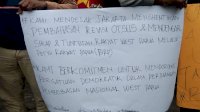 # KAMI MENDESAK JAKARTA MENGHENTIKAN
PEMBAHASAN REVISI OTSUS & MENDENGAR
SIKAP & TUNTUTAN RAKYAT WEST PAPUA MELALUI
PETISI RAKYAT PAPUA (PRP)
# KAMI BERKOMITMEN UNTUK MENDORONG
PERSATUAN DEMOKRATIK DALAM PERJUANGAN
PEMBEBASAN NASIONAL WEST PAPUA